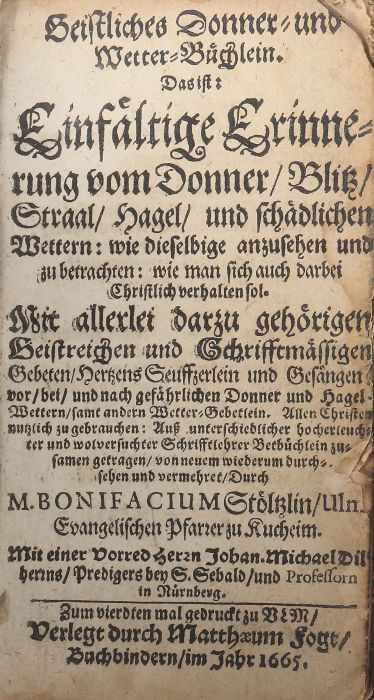 Geistliches Donner- und
Wetter-Büchlein.
Das ist:
Einfältige Erinne-
rung vom Donner/ Blitz/
Straal/ Hagel/ und schädlichen
Wettern: wie dieselbige anzusehen und
zu betrachten: wie man sich auch darbei
Christlich verhalten sol.
Mit allerlei darzu gehörigen
Geistreichen und Schrifftmässigen
Gebeten/ Hertzens Seuffzerlein und Gesängen
vor/ bei/ und nach gefährlichen Donner und Hagel-
Wettern/ samt andern Wetter-Gebetlein. Allen Christen
nutzlich zu gebrauchen: Auß unterschiedlicher hocherleuch-
ter und wolversuchter Schrifftlehrer Betbüchlein zu-
samen getragen/ von neuem wiederum durch-
sehen und vermehret/ Durch
M. BONIFACIUM Stöltzlin/ Ulm.
Evangelischen Pfarrer zu Kucheim.
Mit einer Vorred Herrn Johan. Michael Dil-
herrns/ Predigers bey S. Sebald/ und Professorn
in Nürnberg.
Zum vierdten mal gedruckt zu VLM/
Verlegt durch Matthæum Fogt/
Buchbindern/ im Jahr 1665.